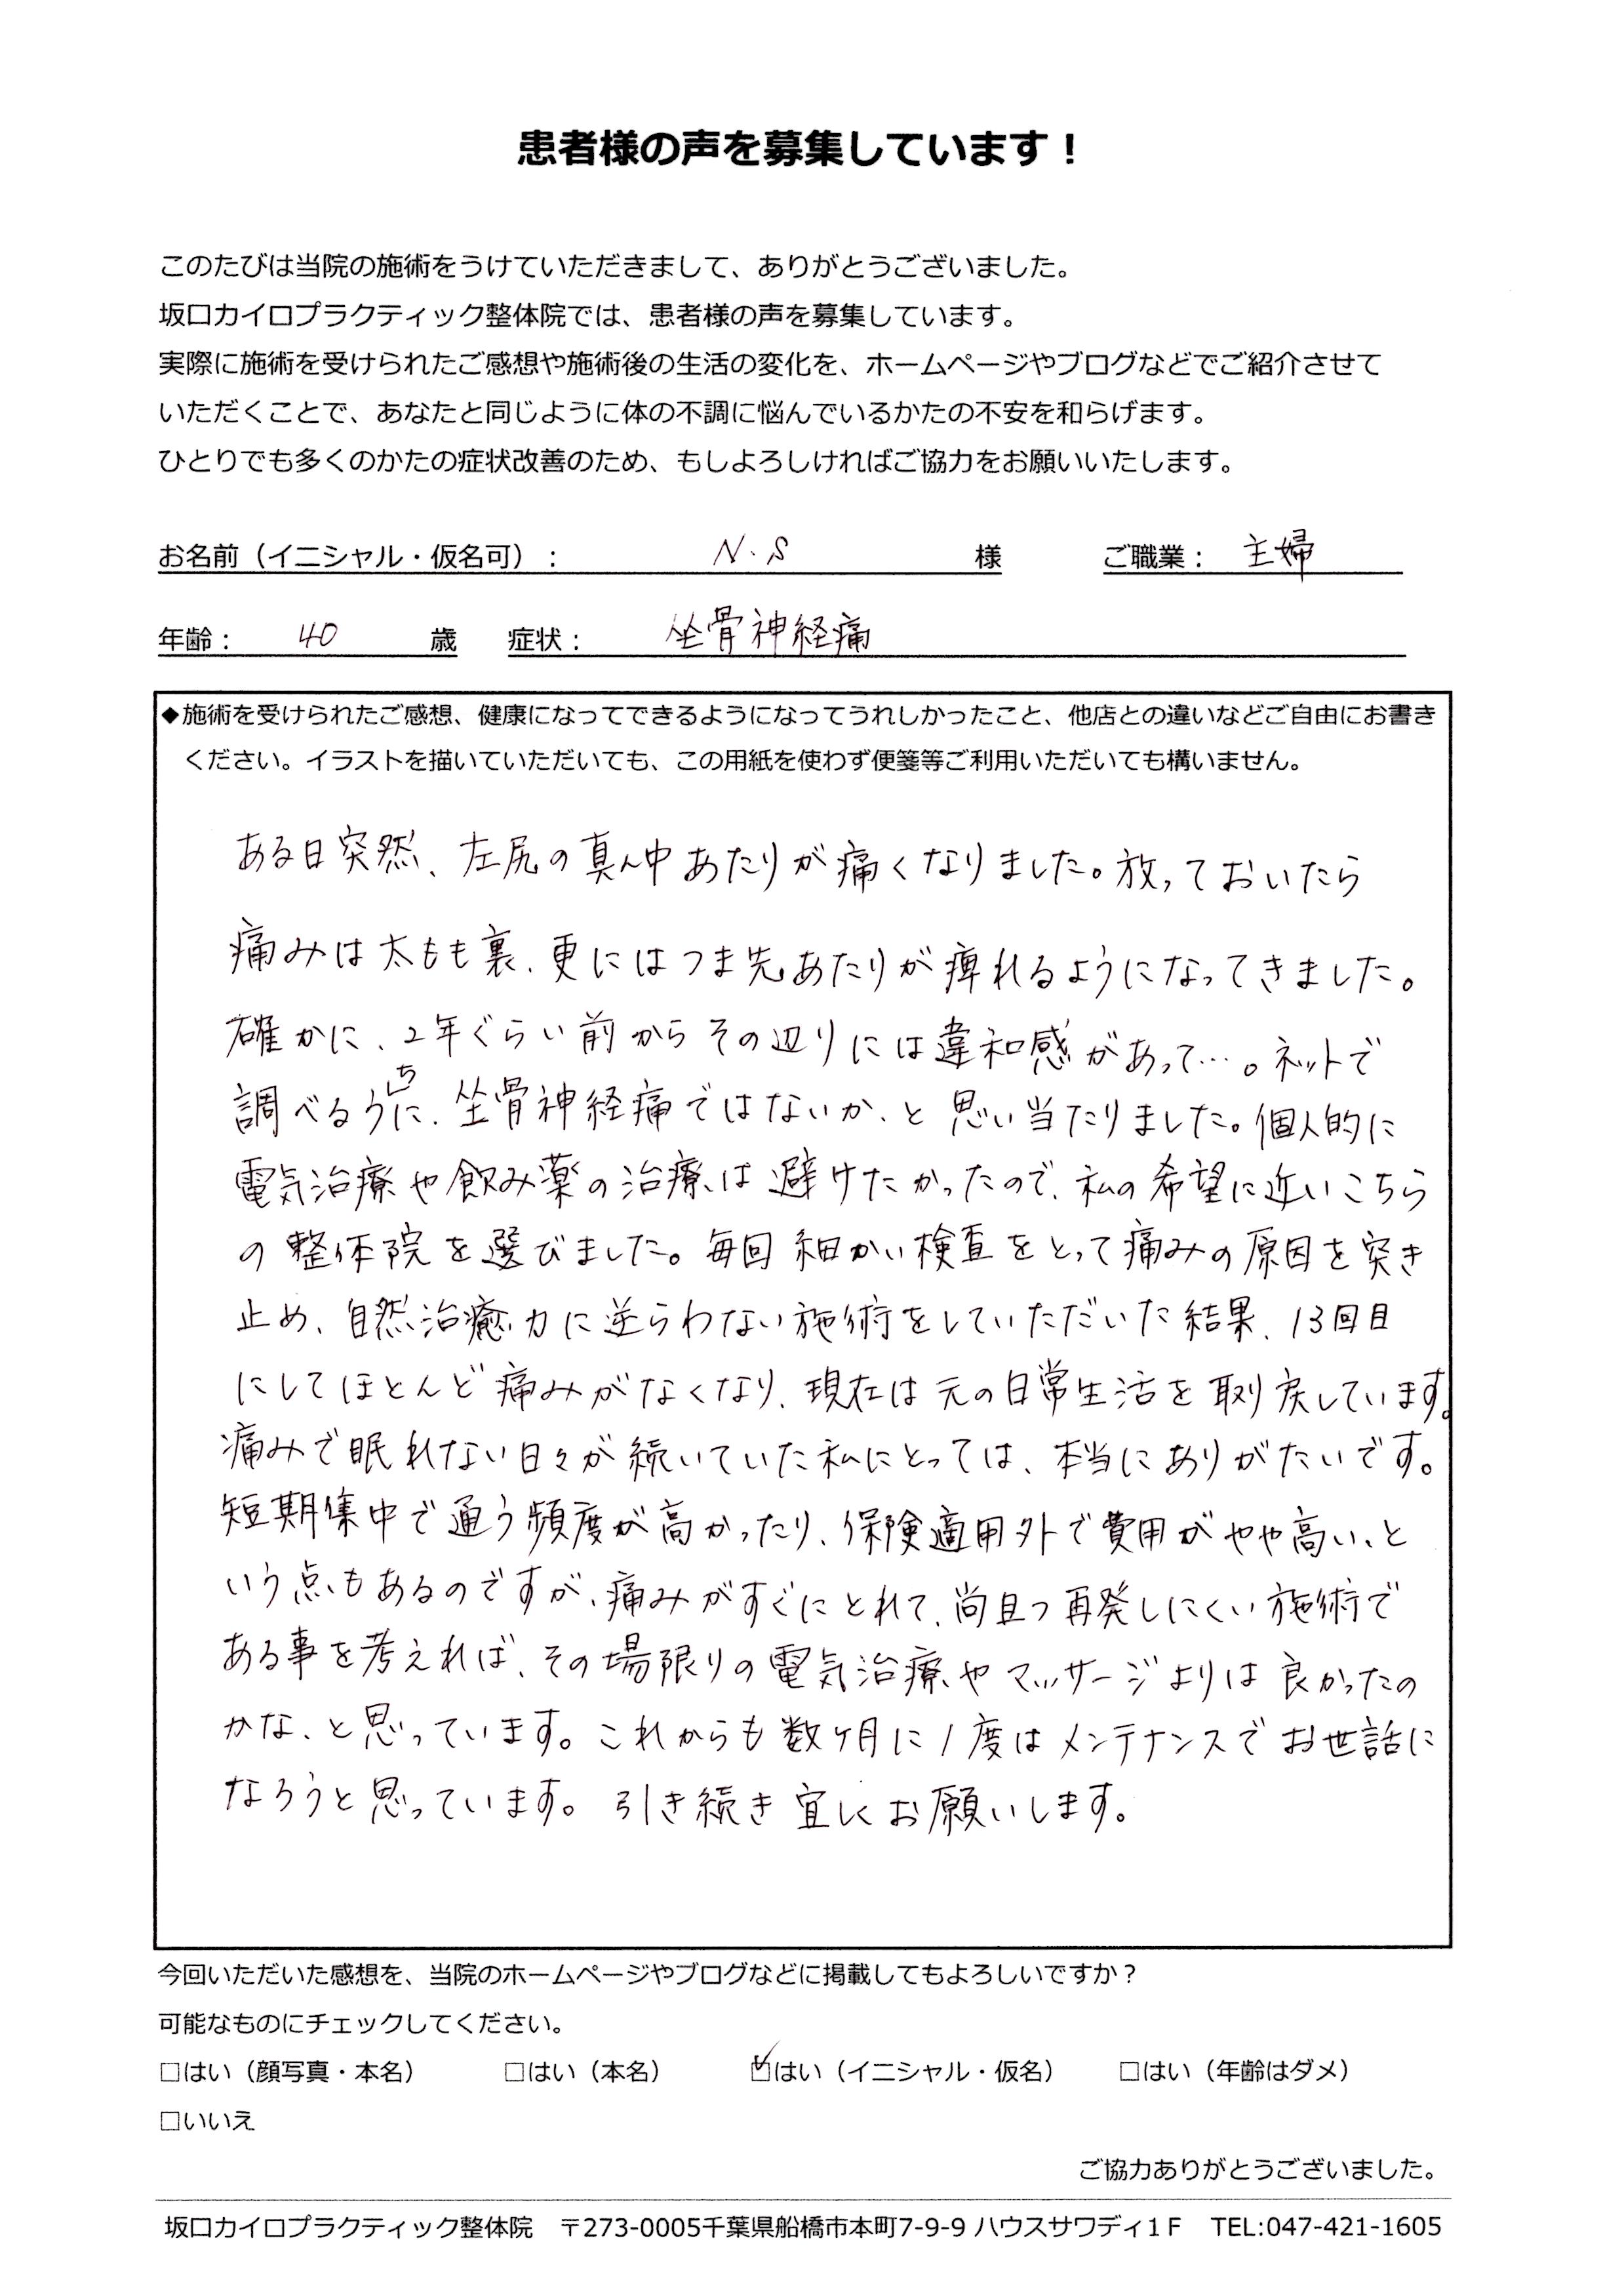 患者様の声を募集しています！
このたびは当院の施術をうけていただきまして、ありがとうございました。
坂口カイロプラクティック整体院では、患者様の声を募集しています。
実際に施術を受けられたご感想や施術後の生活の変化を、ホームページやブログなどでご紹介させて
いただくことで、あなたと同じように体の不調に悩んでいるかたの不安を和らげます。
ひとりでも多くのかたの症状改善のため、もしよろしければご協力をお願いいたします。
お名前（イニシャル・仮名可）： N.S 様 ご職業： 主婦
年齢： 40 歳 症状： 坐骨神経痛
◆施術を受けられたご感想、健康になってできるようになってうれしかったこと、他店との違いなどご自由にお書き
ください。イラストを描いていただいても、この用紙を使わず便箋等ご利用いただいても構いません。
ある日突然、左尻の真ん中あたりが痛くなりました。放っておいたら
痛みは太もも裏、更にはつま先あたりが痺れるようになってきました。
確かに、2年ぐらい前からその辺りには違和感があって…。ネットで
調べるうちに、坐骨神経痛ではないか、と思い当たりました。個人的に
電気治療や飲み薬の治療は避けたかったので、私の希望に近いこちら
の整体院を選びました。毎回細かい検査をとって痛みの原因を突き
止め、自然治癒力に逆らわない施術をしていただいた結果、13回目
にしてほとんど痛みがなくなり、現在は元の日常生活を取り戻しています。
痛みで眠れない日々が続いていた私にとっては、本当にありがたいです。
短期集中で通う頻度が高かったり、保険適用外で費用がやや高い、と
いう点もあるのですが、痛みがすぐにとれて、尚且つ再発しにくい施術で
ある事を考えれば、その場限りの電気治療やマッサージよりは良かったの
かな、と思っています。これからも数ヶ月に1度はメンテナンスでお世話に
なろうと思っています。引き続き宜しくお願いします。
今回いただいた感想を、当院のホームページやブログなどに掲載してもよろしいですか？
可能なものにチェックしてください。
□はい（顔写真・本名） □はい（本名） ☑はい（イニシャル・仮名） □はい（年齢はダメ）
□いいえ
ご協力ありがとうございました。
坂口カイロプラクティック整体院 〒273-0005千葉県船橋市本町7-9-9 ハウスサワディ1F TEL:047-421-1605